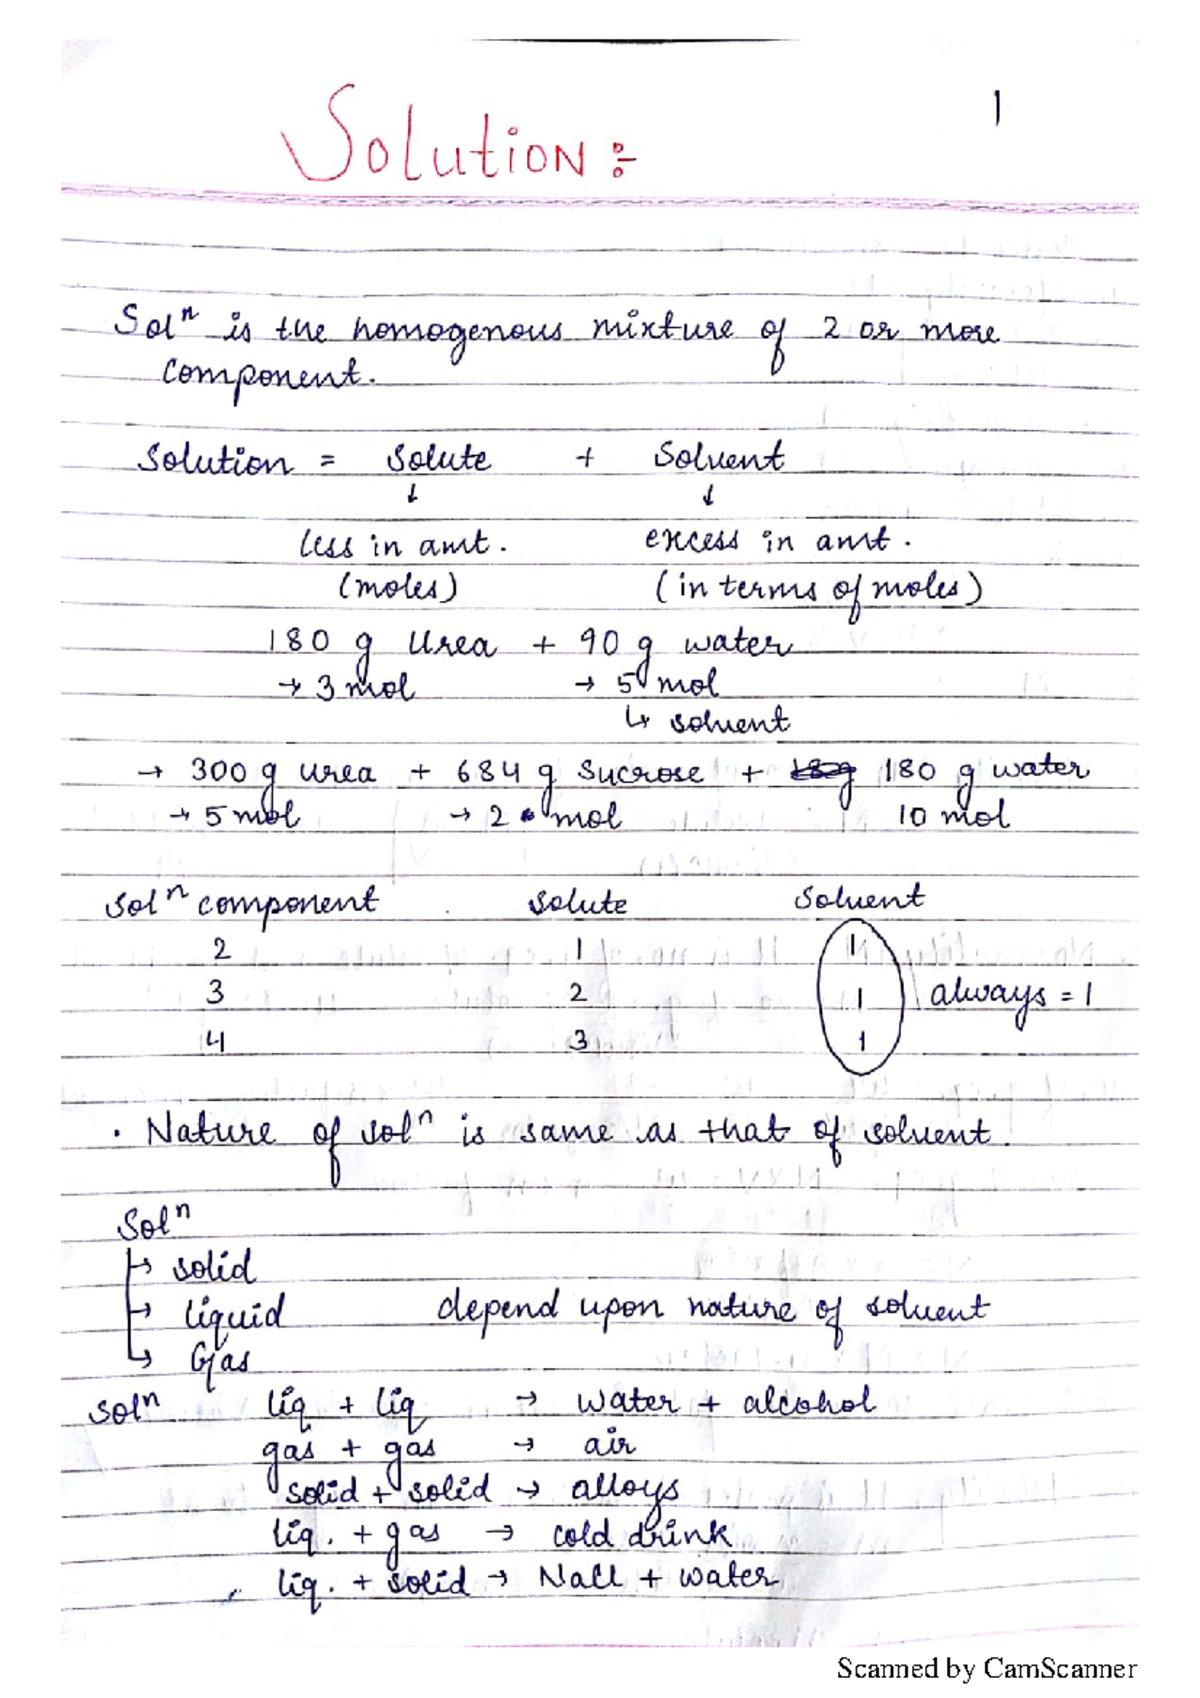 1
Solution :-
Solⁿ is the homogenous mixture of 2 or more
component.
Solution = Solute + Solvent
↓ ↓
less in amt. excess in amt.
(moles) (in terms of moles)
180 g Urea + 90 g water
→ 3 mol → 5 mol
↳ solvent
→ 300 g urea + 684 g sucrose + 180 g water
→ 5 mol → 2 mol 10 mol
Solⁿ component Solute Solvent
2 1 1
3 2 1 always = 1
4 3 1
· Nature of solⁿ is same as that of solvent.
Solⁿ
→ solid
→ liquid depend upon nature of solvent
↳ Gas
Solⁿ liq + liq → water + alcohol
gas + gas → air
solid + solid → alloys
liq. + gas → cold drink
liq. + solid → NaCl + water
Scanned by CamScanner